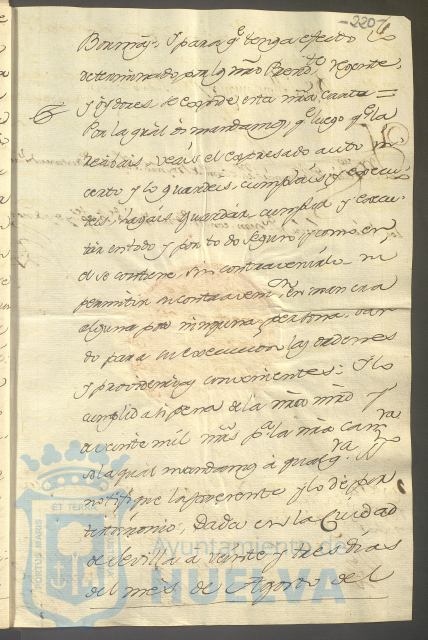 - 220 -
y para q.e tenga efecto lo
determinado por los nros Regente,
y oydores se acordó dar esta nra carta =
Por la qual os mandamos, q.e luego q.e la
recivais veais el expresado auto in
certo y lo guardeis, cumplais y execu
teis, hagais guardar, cumplir y execu
tar en todo y por todo segun y como en
el se contiene sin contravenirlo ni
permitir se contravenga en manera
alguna por ninguna persona dan
do para su execucion las ordenes
y providencias convenientes: Y lo
cumplid asi pena de la nra mrd y
de veinte mil mrs p.a la nra Cam.ra
so la qual mandamos a qualq.r
notifique la presente y lo dé por
testimonio. Dada en la Ciudad
de Sevilla a veinte y tres dias
del mes de Agosto de
PORTUS MARIS
ET TERRAE
Ayuntamiento de
HUELVA